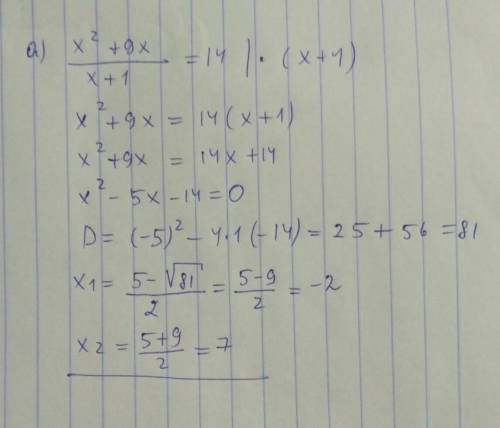 a) x² + 9x / x + 1 = 14 | · (x + 1)
x² + 9x = 14(x + 1)
x² + 9x = 14x + 14
x² - 5x - 14 = 0
D = (-5)² - 4·1(-14) = 25 + 56 = 81
x1 = 5 - √81 / 2 = 5 - 9 / 2 = -2
x2 = 5 + 9 / 2 = 7